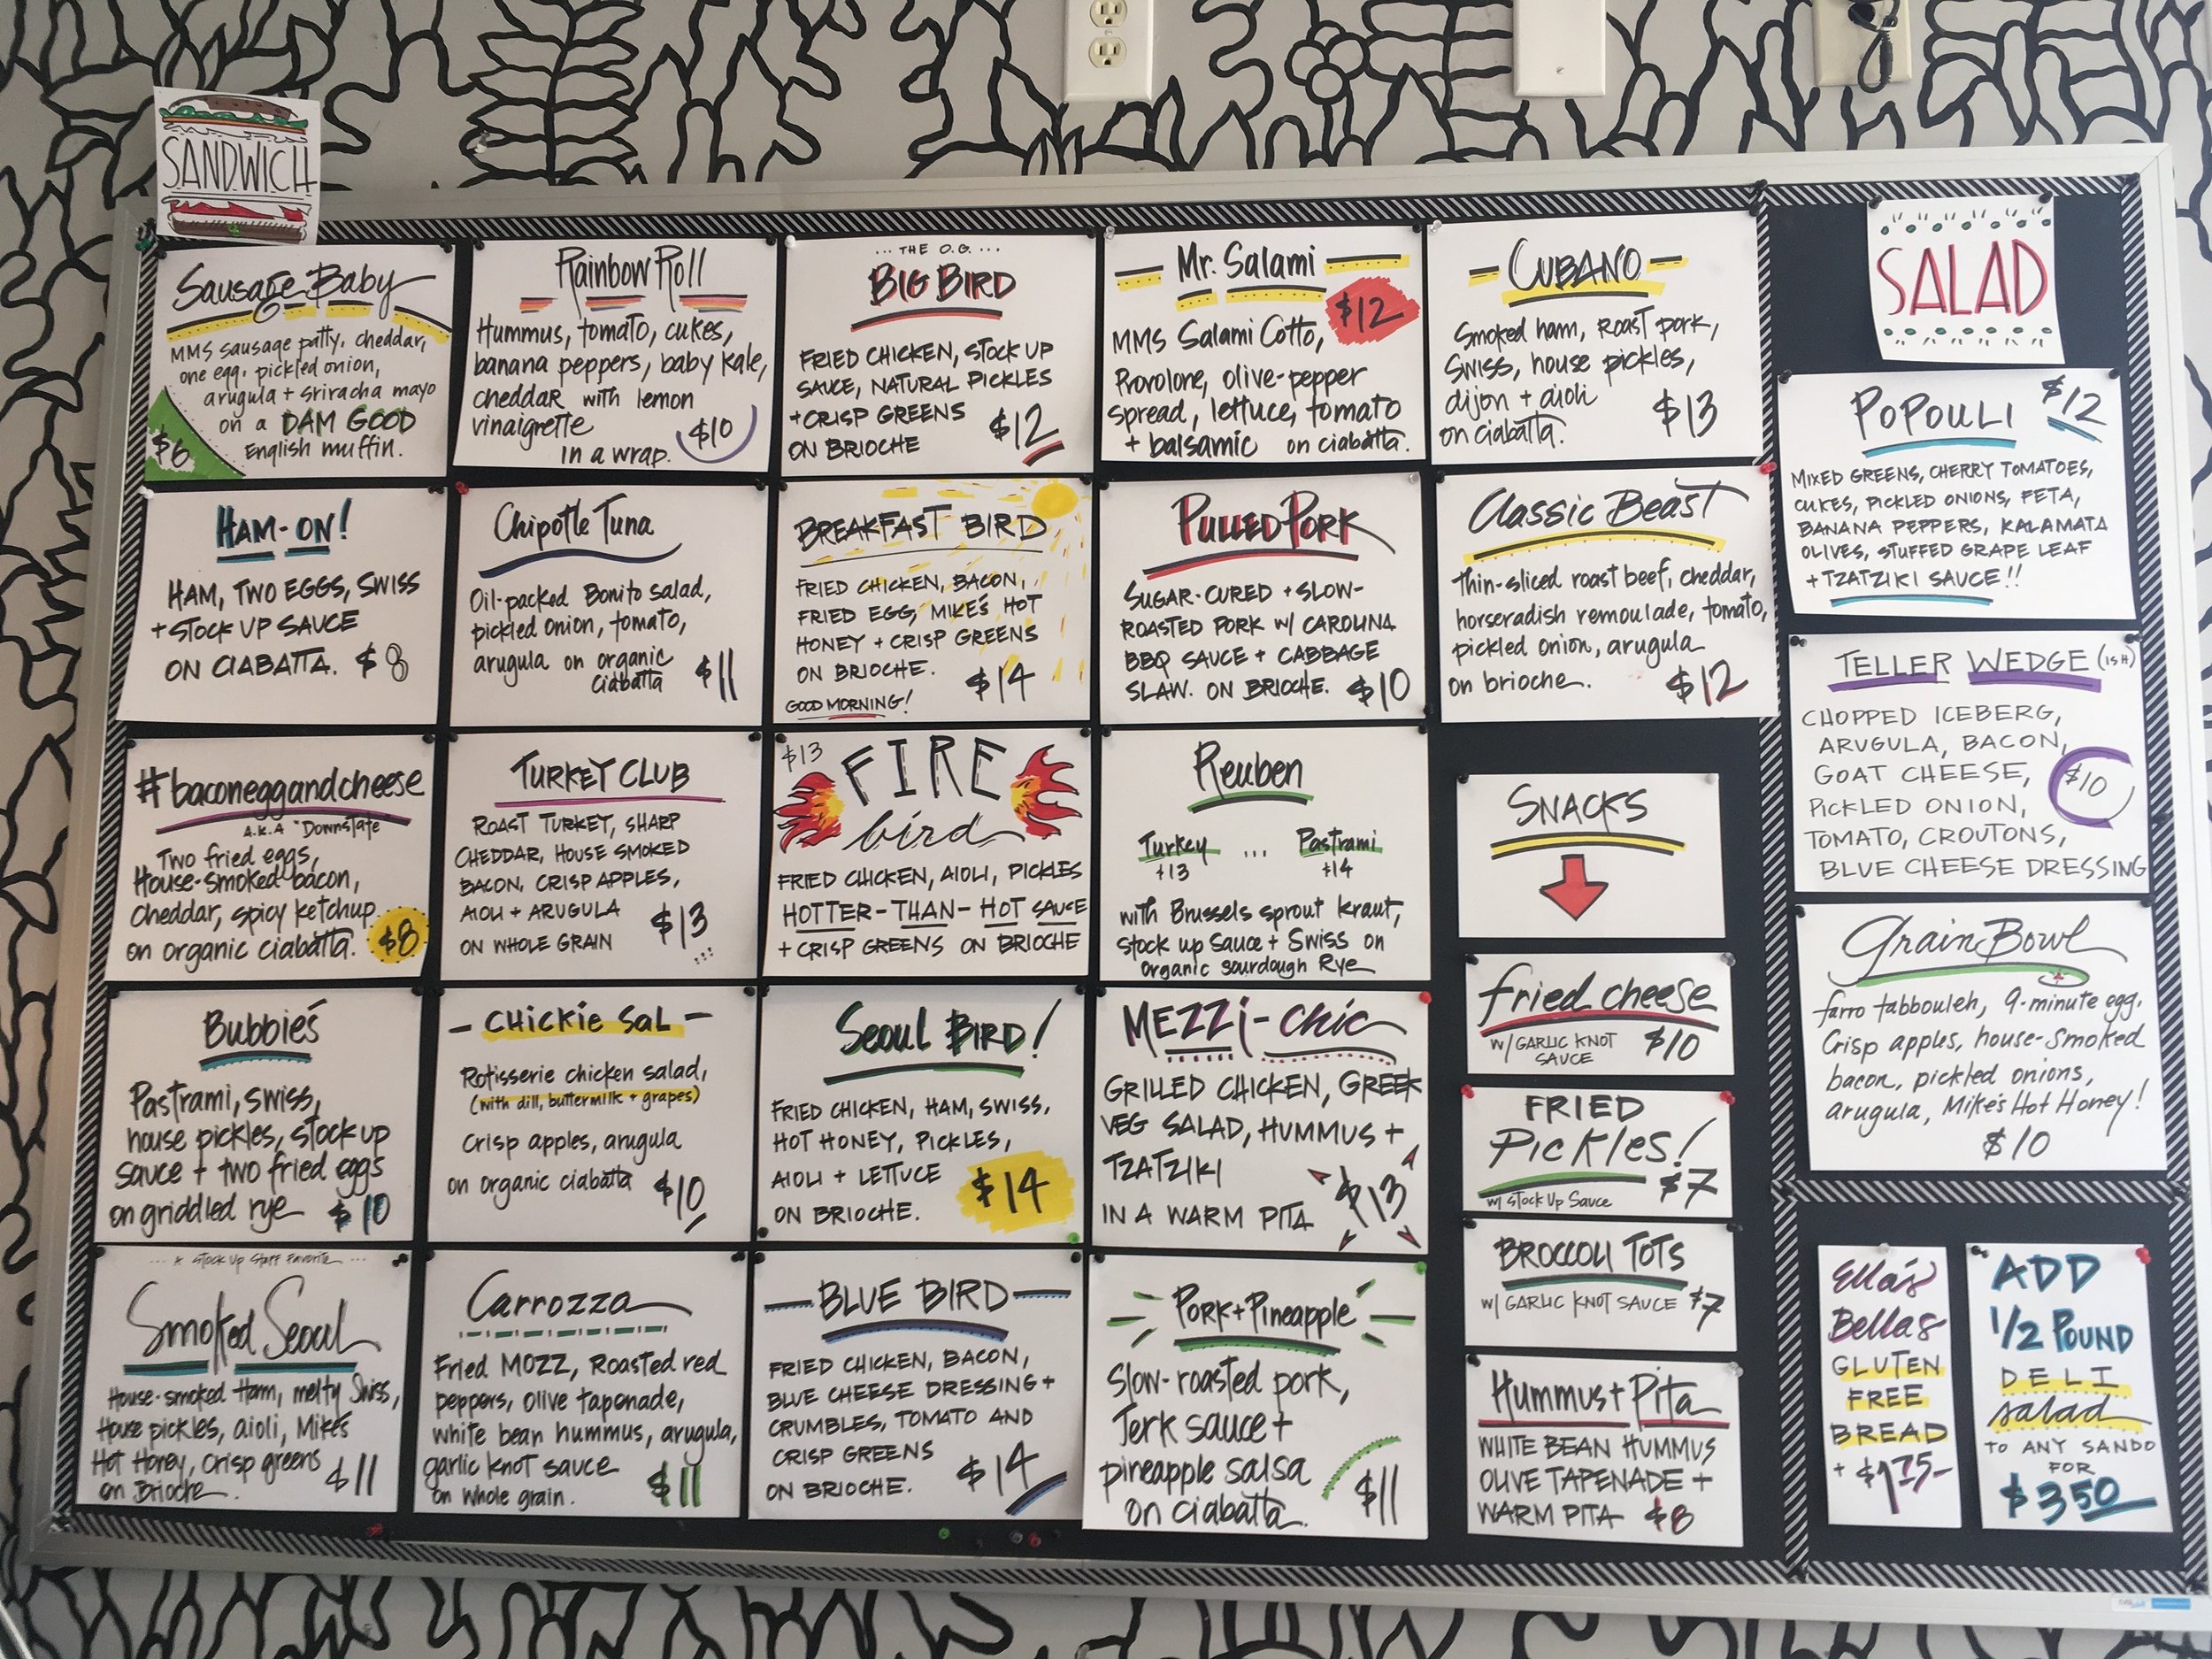 SANDWICH
Sausage Baby
MMS sausage patty, cheddar,
one egg, pickled onion,
arugula + sriracha mayo
on a DAM GOOD
English muffin.
$6
HAM-ON!
HAM, TWO EGGS, SWISS
+ STOCK UP SAUCE
ON CIABATTA. $8
#baconeggandcheese
A.K.A "Downstate"
Two fried eggs,
House-smoked bacon,
Cheddar, spicy ketchup
on organic ciabatta. $8
Bubbie's
Pastrami, swiss,
house pickles, stock up
sauce + two fried eggs
on griddled rye $10
... A Stock Up Staff Favorite ...
Smoked Seoul
House-smoked Ham, melty Swiss,
House pickles, aioli, Mike's
Hot Honey, Crisp greens
on Brioche. $11
Rainbow Roll
Hummus, tomato, cukes,
banana peppers, baby kale,
cheddar with lemon
vinaigrette
in a wrap. $10
Chipotle Tuna
Oil-packed Bonito salad,
pickled onion, tomato,
arugula on organic
ciabatta $11
TURKEY CLUB
ROAST TURKEY, SHARP
CHEDDAR, HOUSE SMOKED
BACON, CRISP APPLES,
AIOLI + ARUGULA
ON WHOLE GRAIN $13
- CHicKie SaL -
Rotisserie chicken salad,
(with dill, buttermilk + grapes)
Crisp apples, arugula
on organic ciabatta $10
Carrozza
Fried MOZZ, Roasted red
peppers, olive tapenade,
white bean hummus, arugula,
garlic knot sauce
on whole grain. $11
... THE O.G. ...
BIG BIRD
FRIED CHICKEN, STOCK UP
SAUCE, NATURAL PICKLES
+ CRISP GREENS
ON BRIOCHE $12
BREAKFAST BIRD
FRIED CHICKEN, BACON,
FRIED EGG, MIKE'S HOT
HONEY + CRISP GREENS
ON BRIOCHE. $14
GOOD MORNING!
$13
FIRE
bird
FRIED CHICKEN, AIOLI, PICKLES
HOTTER-THAN-HOT SAUCE
+ CRISP GREENS ON BRIOCHE
Seoul BIRD!
FRIED CHICKEN, HAM, SWISS,
HOT HONEY, PICKLES,
AIOLI + LETTUCE
ON BRIOCHE. $14
BLUE BIRD
FRIED CHICKEN, BACON,
BLUE CHEESE DRESSING +
CRUMBLES, TOMATO AND
CRISP GREENS
ON BRIOCHE. $14
Mr. Salami
$12
MMS Salami Cotto,
Provolone, olive-pepper
spread, lettuce, tomato
+ balsamic on ciabatta.
PULLED PORK
SUGAR-CURED + SLOW-
ROASTED PORK W/ CAROLINA
BBQ SAUCE + CABBAGE
SLAW. ON BRIOCHE. $10
Reuben
Turkey ... Pastrami
$13 $14
with Brussels sprout kraut,
stock up sauce + Swiss on
Organic sourdough Rye
MEZZi-chic
GRILLED CHICKEN, GREEK
VEG SALAD, HUMMUS +
TZATZIKI
IN A WARM PITA $13
PORK + Pineapple
Slow-roasted pork,
Jerk sauce +
pineapple salsa
on ciabatta. $11
- CUBANO -
Smoked ham, Roast pork,
Swiss, house pickles,
dijon + aioli
on ciabatta. $13
Classic Beast
Thin-sliced roast beef, cheddar,
horseradish remoulade, tomato,
pickled onion, arugula
on brioche. $12
SNACKS
fried cheese
w/ GARLIC KNOT
SAUCE $10
FRIED
Pickles!
w/ Stock Up Sauce $7
BROCCOLI TOTS
w/ GARLIC KNOT SAUCE $7
Hummus + Pita
WHITE BEAN HUMMUS
OLIVE TAPENADE +
WARM PITA $8
SALAD
POPOULI $12
MIXED GREENS, CHERRY TOMATOES,
CUKES, PICKLED ONIONS, FETA,
BANANA PEPPERS, KALAMATA
OLIVES, STUFFED GRAPE LEAF
+ TZATZIKI SAUCE!!
TELLER WEDGE (ISH)
CHOPPED ICEBERG,
ARUGULA, BACON,
GOAT CHEESE, $10
PICKLED ONION,
TOMATO, CROUTONS,
BLUE CHEESE DRESSING
Grain Bowl
farro tabbouleh, 9-minute egg,
Crisp apples, house-smoked
bacon, pickled onions,
arugula, Mike's Hot Honey!
$10
Ella's
Bella's
GLUTEN
FREE
BREAD
+ $1.75
ADD
1/2 POUND
DELI
salad
TO ANY SANDO
FOR
$3.50